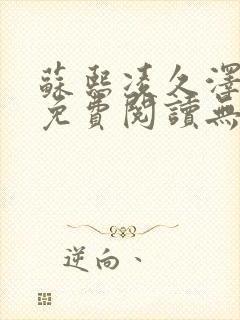 蘇熙凌久澤
免費閱讀無
逆向、